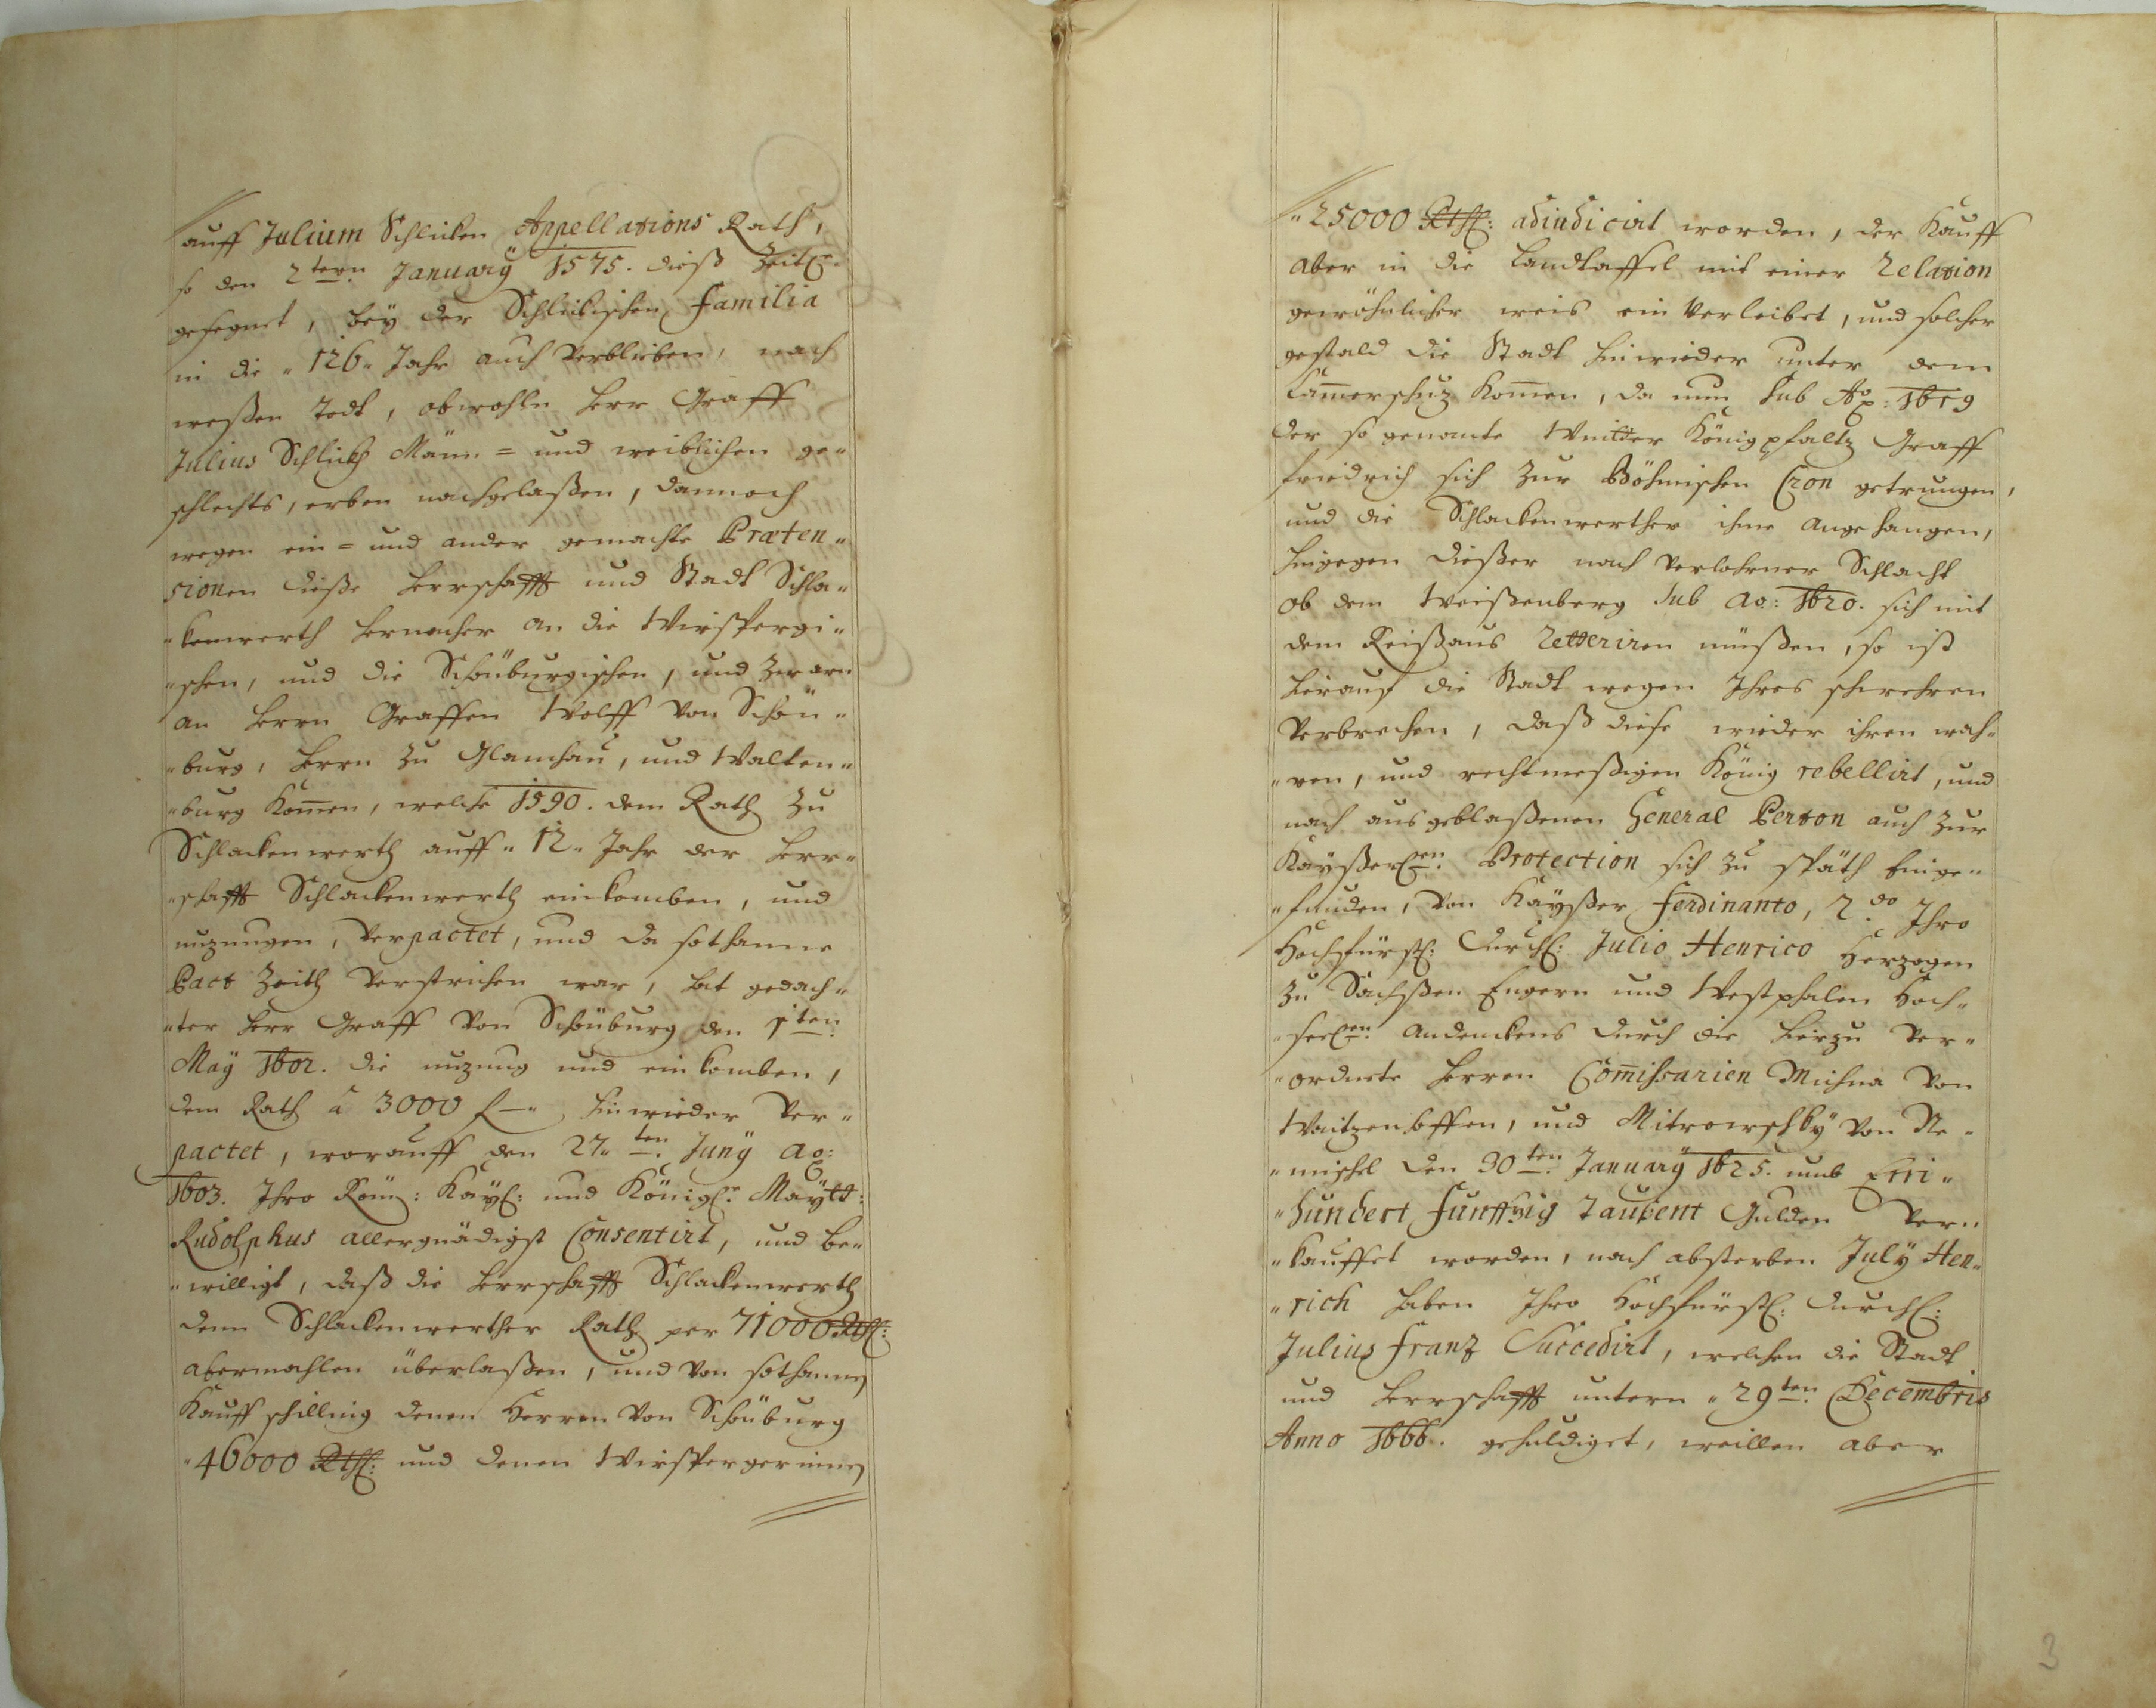 auff Julium Schlicken Appellations Rath,
so den 2tern January 1575. dieß Zeitl:
gesegnet, bey der Schlickischen Familia
in die „126„ Jahr auch verblieben, nach
weßen Todt, obwohln Herr Graff
Julius Schlickh Männ= und weiblichen ge„
schlechts, erben nachgelaßen, dannoch
wegen ein= und ander gemachte Præten„
sionen dieße Herrschafft und Stadt Schla„
„kenwerth hernacher an die Wirspergi„
„schen, und die Schönburgischen, und zwarn
an Herrn Graffen Wolff von Schön„
„burg, Herrn zu Glauchau, und Walten„
„burg kom̄en, welche 1590. dem Rath zu
Schlackenwerth auff „12„ Jahr der Herr„
„schafft Schlackenwerth einkomben, und
nuzungen, verpactet, und da sothanne
Pact Zeith verstrichen war, hat gedach„
„ter Herr Graff von Schönburg den 1ten
May 1602. die nuzung und einkomben,
dem Rath â 3000 f—„ hinwieder ver„
pactet, worauff den 27„ten Juny ao:
1603. Ihro Röm: Kayl: und Königl: Maytt:
Rudolphus allergnädigst Consentirt, und be„
„willigt, daß die Herrschafft Schlackenwerth
denn Schlackenwerther Rath per 71000 Rthl:
abermahlen überlaßen, und von sothannen
Kauffschilling denen Herren von Schönburg
„46000 Rthl: und denen Wirspergerinnen
„25000 Rthl: adiudicirt worden, der Kauff
aber in die Landtaffel mit einer Relation
gewöhnlicher weis ein verleibet, und solcher
gestald die Stadt hinwieder unter dem
Cam̄erschuz kom̄en, da nun sub Ao: 1619
der so genante Wintter König pfaltz Graff
Friedrich sich zur Böhmischen Cron getrungen,
und die Schlackenwerther ihme angehangen,
hingegen dießer nach verlohrner Schlacht
ob dem Weißenberg sub ao: 1620. sich mit
dem Reißaus Retteriren müßen, so ist
hierauf die Stadt wegen Ihres schwehren
verbrechen, daß diese wieder ihren wah„
„ren, und rechtmeßigen König rebellirt, und
nach ausgeblaßenen General Perton auch zur
Kayßerl:en Protection sich zu späth Einge„
„funden, von Kayßer Ferdinanto, 2do Ihro
Hochfürstl: Durchl: Julio Henrico Herzogen
zu Sachßen Engern und Westphalen Hoch„
„seel:en andenckens durch die hierzu ver„
„ordnete Herren Com̄issarien Michna von
Waitzenhoffen, und Mitrowschky von Ne„
„mischl den 30ten January 1625. umb Ein„
„hundert Funffzig Taußent Gulden ver„
„kauffet worden, nach absterben July Hen„
„rich haben Ihro Hochfürstl: Durchl:
Julius Franz Succedirt, welchen die Stadt
und Herrschafft untern „29ten Decembris
Anno 1666. gehuldiget, weillen aber
3